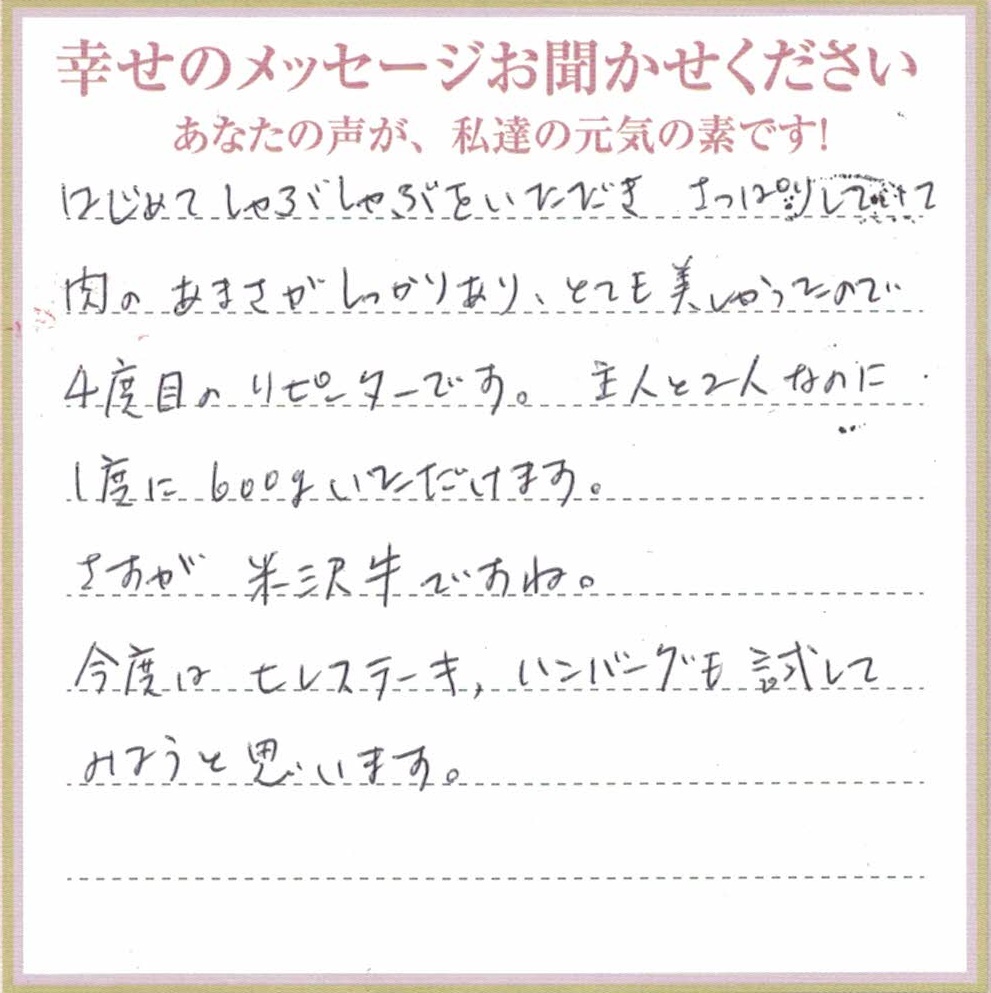 幸せのメッセージお聞かせください
あなたの声が、私達の元気の素です!
はじめて しゃぶしゃぶをいただき さっぱりして
肉の あまさがしっかりあり、とても美しかったので
4度目の リピーターです。 主人と2人なのに
1度に 600gいただけます。
さすが 米沢牛ですね。
今度は ヒレステーキ, ハンバーグも 試して
みようと思います。